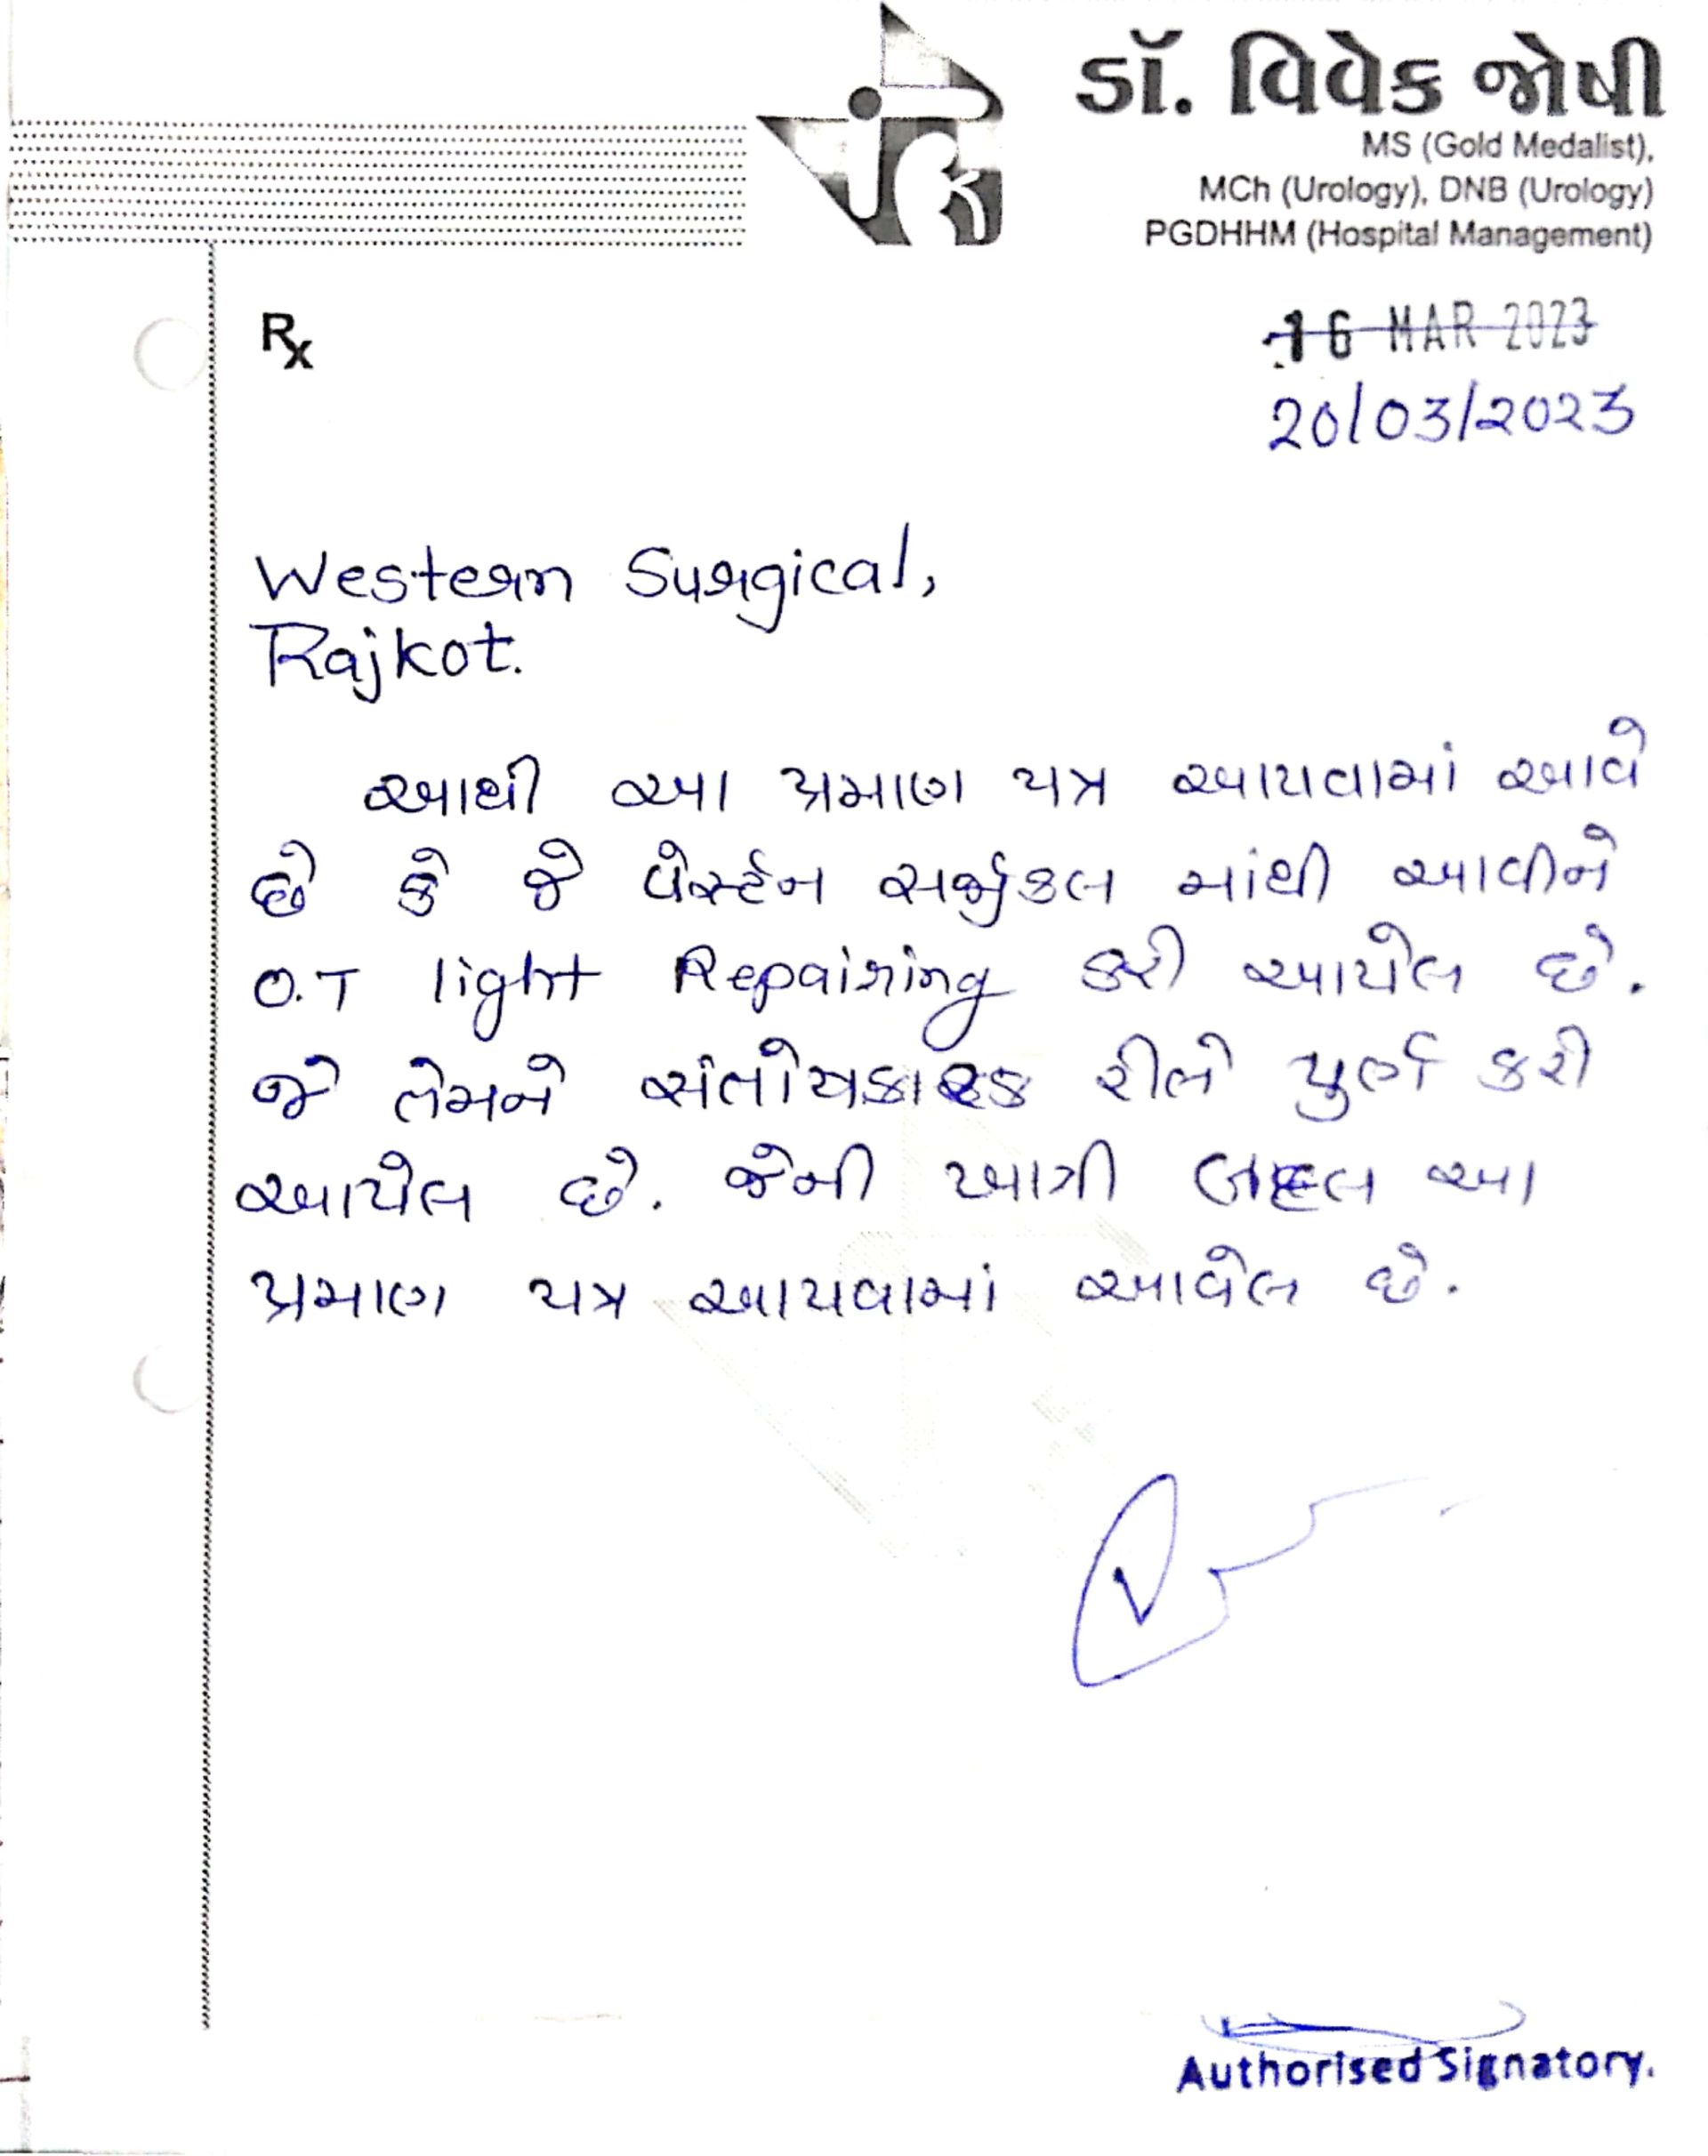 ડૉ. વિવેક જોષી
MS (Gold Medalist),
MCh (Urology), DNB (Urology)
PGDHHM (Hospital Management)
Rx
16 MAR 2023
20/03/2023
Western Surgical,
Rajkot.
આથી આ પ્રમાણ પત્ર આપવામાં આવે
છે કે જે વેસ્ટર્ન સર્જીકલ માંથી આવીને
O.T light Repairing કરી આપેલ છે.
જે તેમને સંતોષકારક રીતે પુર્ણ કરી
આપેલ છે. જેની ખાત્રી બદલ આ
પ્રમાણ પત્ર આપવામાં આવેલ છે.
Authorised Signatory.